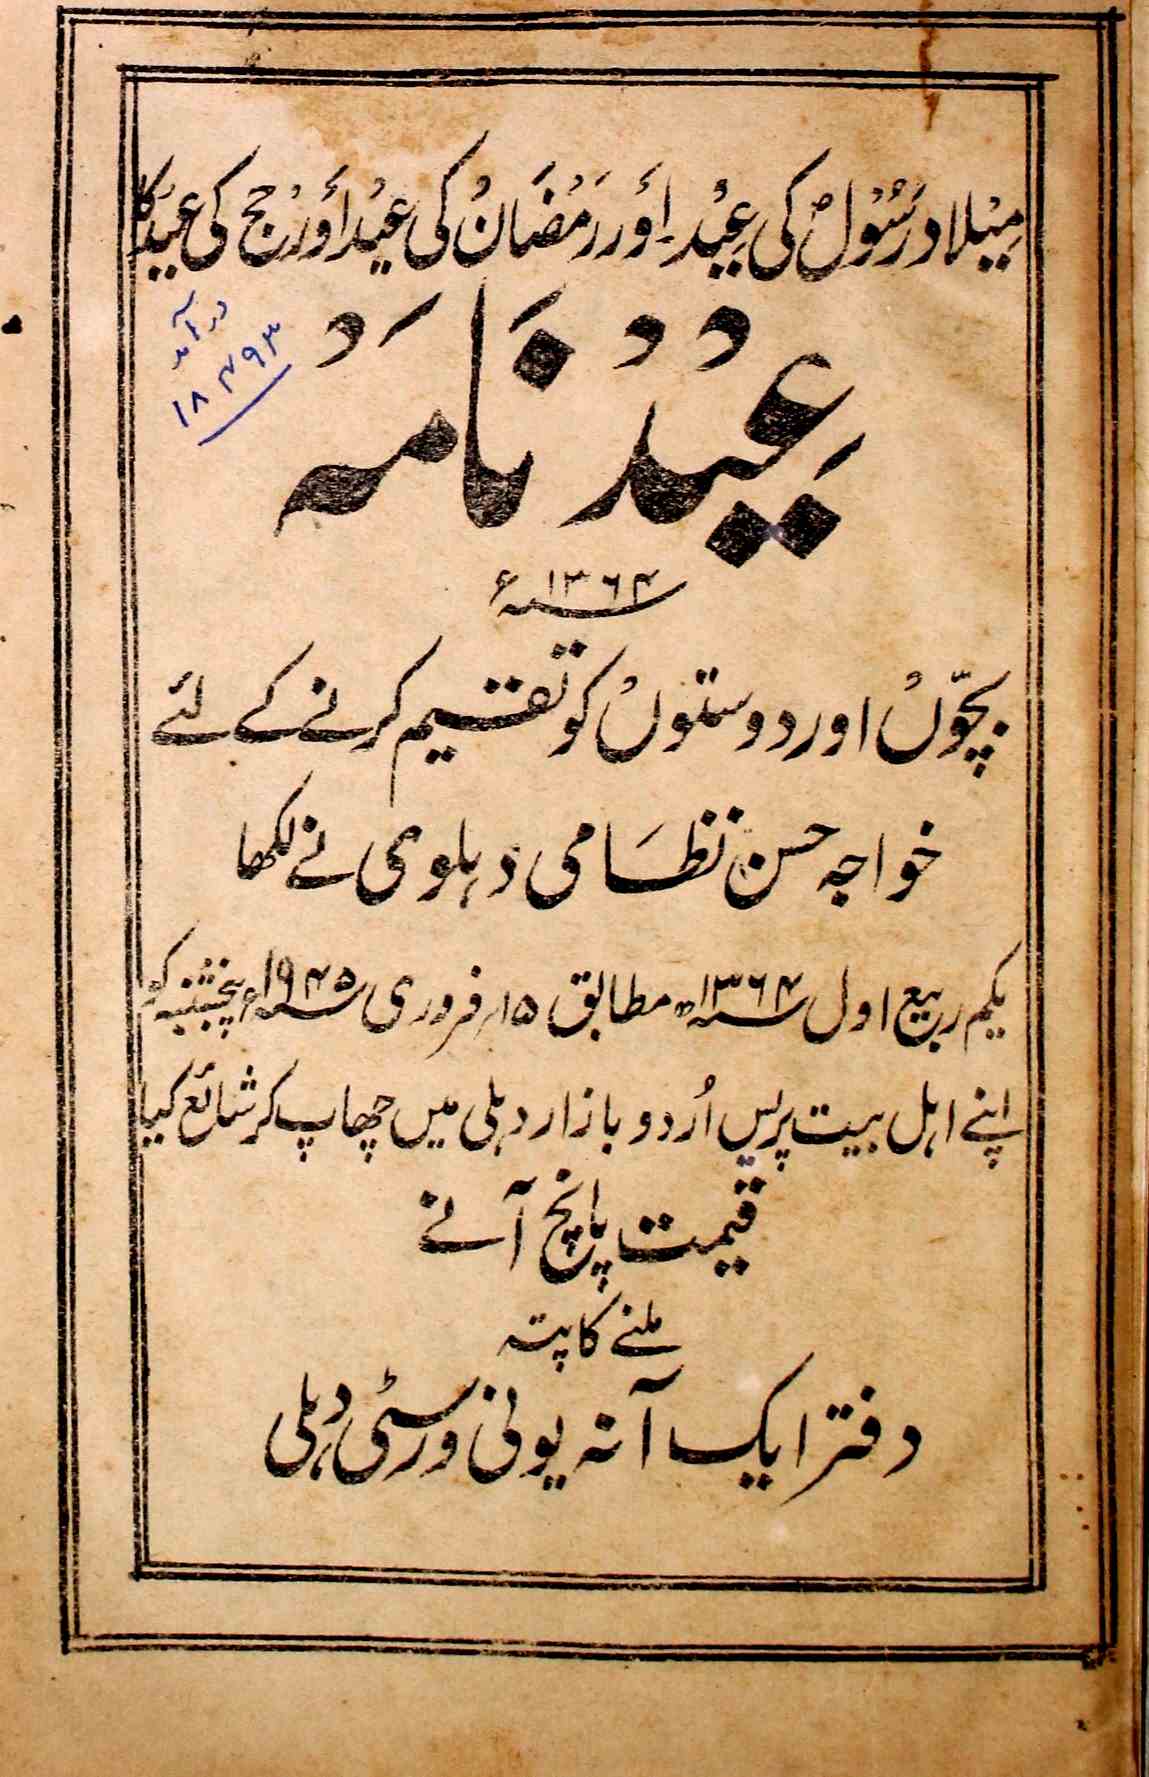 مِیْلاد رَسُوْلؐ کی عِیْد۔ اَور رَمْضَانْ کی عِیْد اَورْ حج کی عِیْد کا
عِیْدْ نَامَہ
۱۳۶۴ سنہ ء
بچّوں اور دوستوں کو تقسیم کرنے کے لئے
خواجہ حسن نظَامی دہلوی نے لکھا
یکم ربیع اول سنہ ۱۳۶۴ھ مطابق ۱۵؍فروری سنہ ۱۹۴۵ء پنجشنبہ کو
اپنے اہل بیت پریس اُردو بازار دہلی میں چھاپ کر شائع کیا
قیمت پانچ آنے
ملنے کا پتہ
دفتر ایک آنہ یونی ورسٹی دہلی
در آمد
۱۸۴۹۳